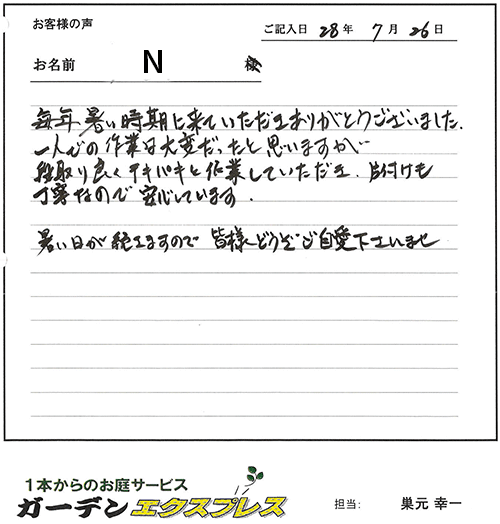 お客様の声
ご記入日 28年 7月 26日
お名前 N 様
毎年暑い時期に来ていただきありがとうございました.
一人での作業は大変だったと思いますが
段取り良くテキパキと作業していただき、片付けも
丁寧なので安心しています.
暑い日が続きますので皆様どうぞご自愛下さいませ
1本からのお庭サービス
ガーデンエクスプレス
担当: 巣元 幸一